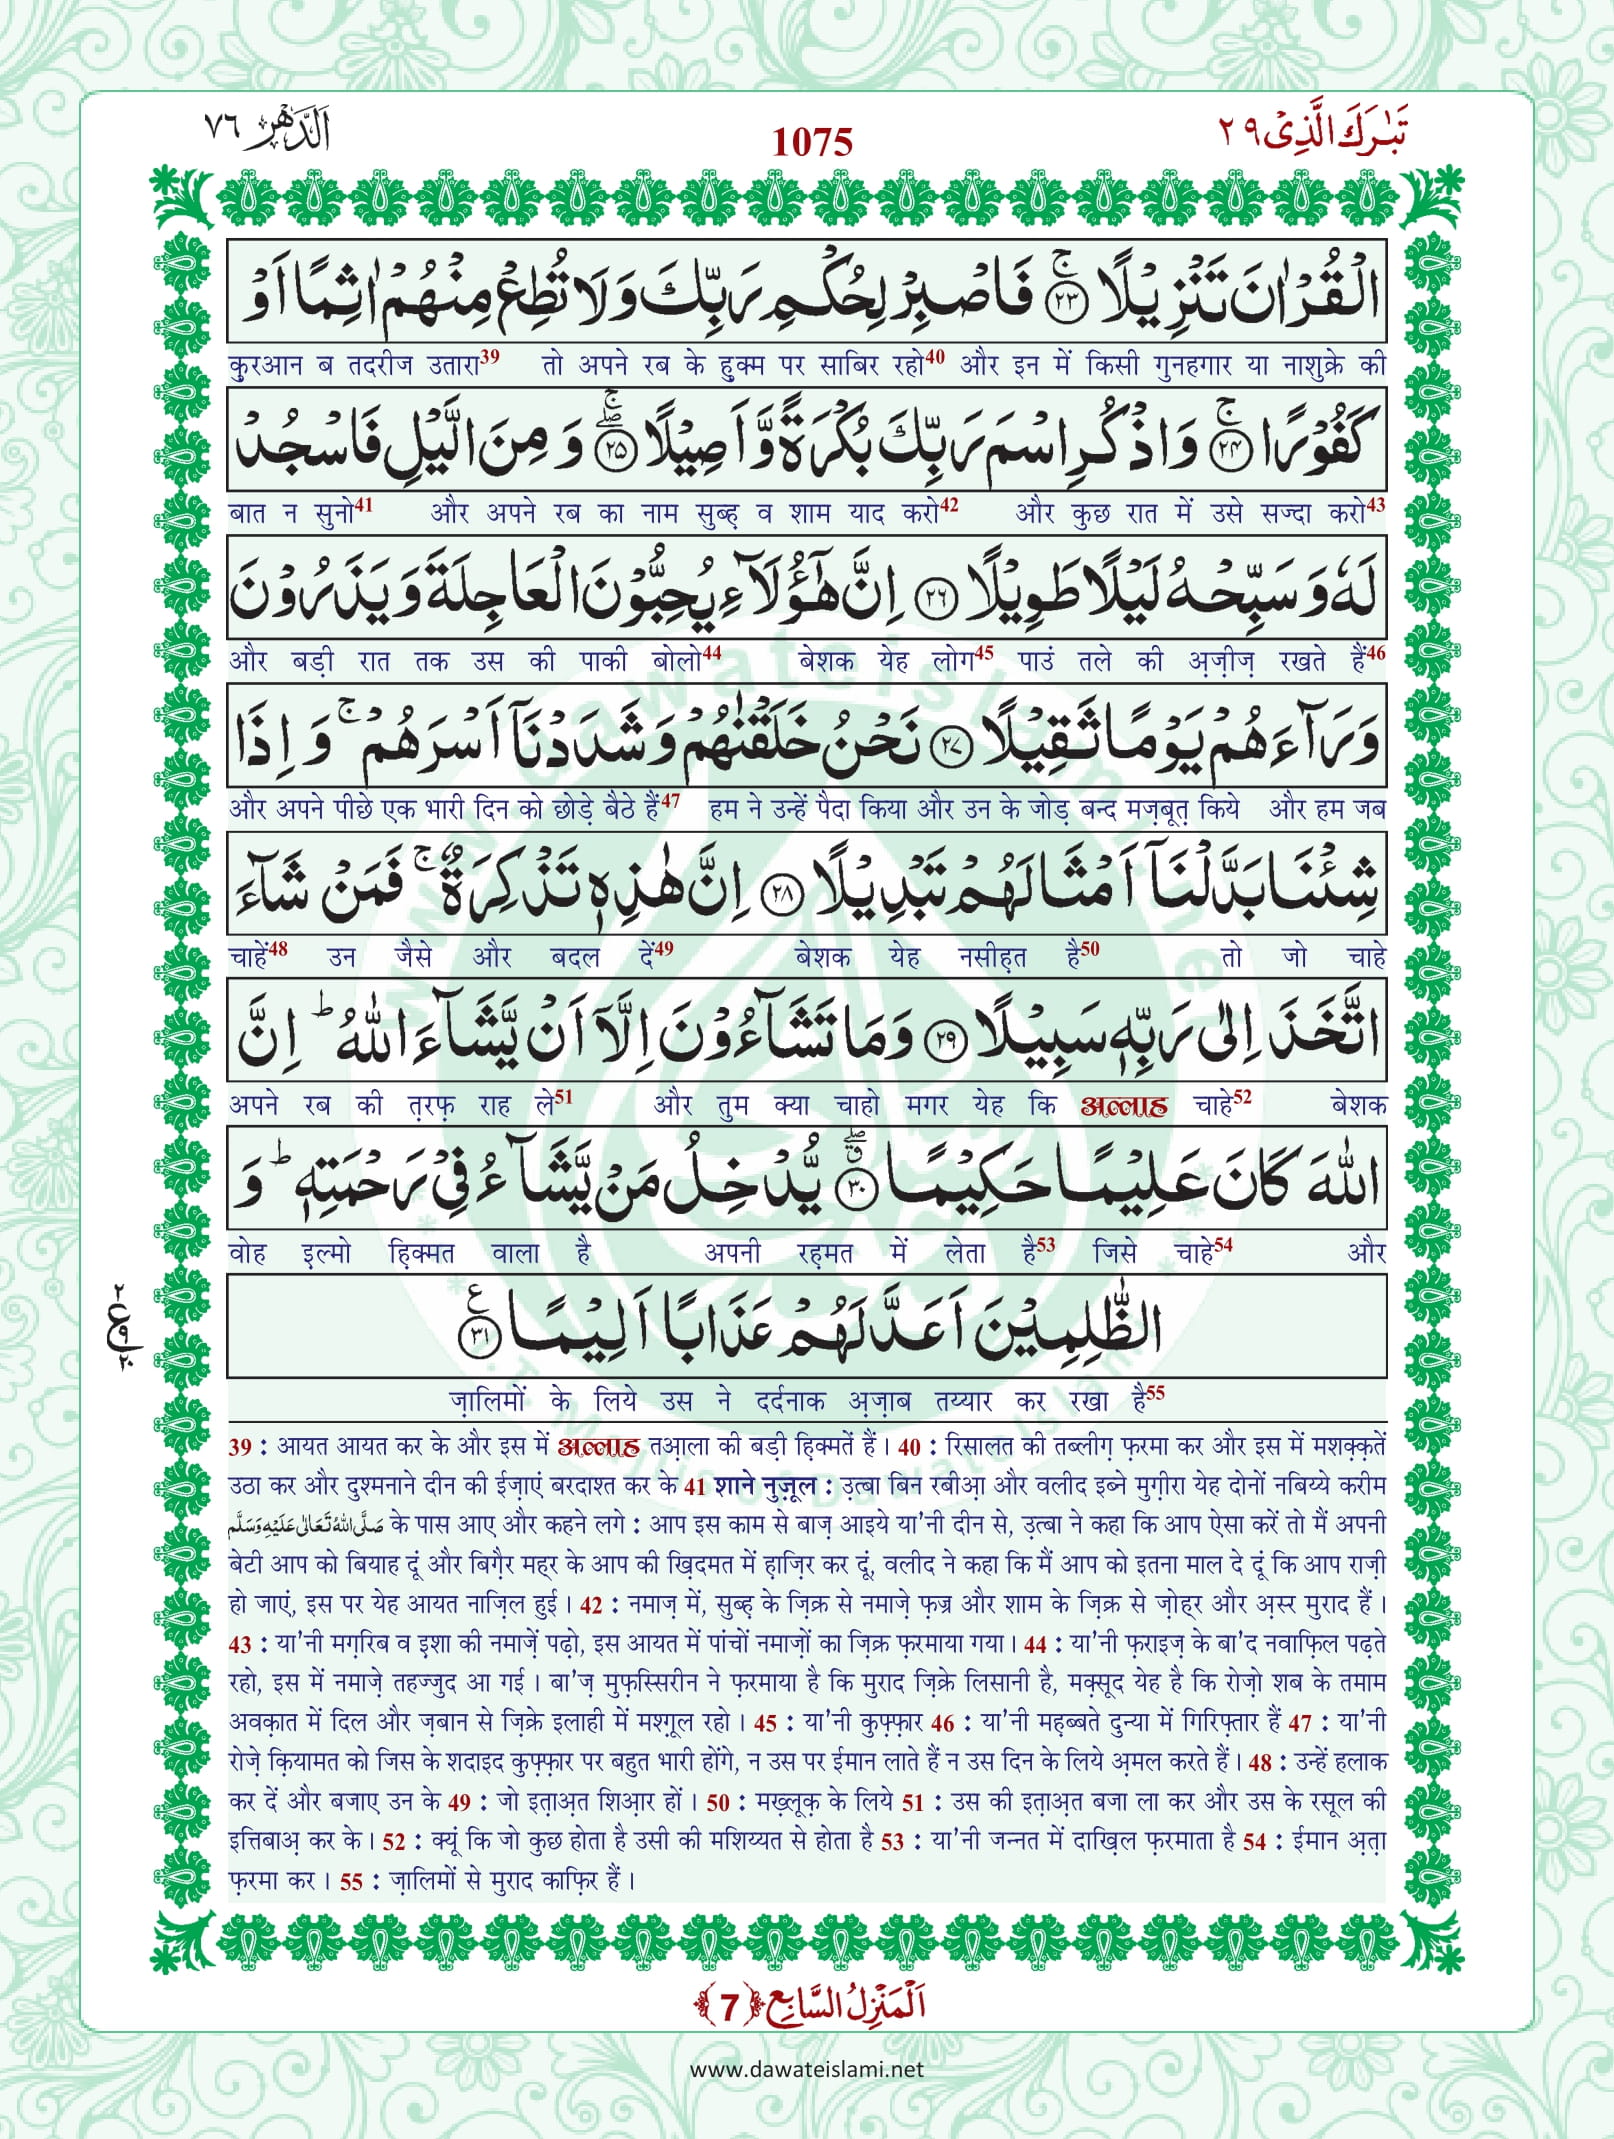 اَلدَّهْر ٧٦
1075
تَبٰرَكَ الَّذِیْ ٢٩
الْقُرْاٰنَ تَنْزِیْلًا ﴿٢٣﴾ۚ فَاصْبِرْ لِحُكْمِ رَبِّكَ وَلَا تُطِعْ مِنْهُمْ اٰثِمًا اَوْ
क़ुरआन ब तदरीज उतारा39 तो अपने रब के हुक्म पर साबिर रहो40 और इन में किसी गुनहगार या नाशुक्रे की
كَفُوْرًا ﴿٢٤﴾ۚ وَاذْكُرِ اسْمَ رَبِّكَ بُكْرَةً وَّاَصِیْلًا ﴿٢٥﴾ۖۚ وَ مِنَ الَّیْلِ فَاسْجُدْ
बात न सुनो41 और अपने रब का नाम सुब्ह़ व शाम याद करो42 और कुछ रात में उसे सज्दा करो43
لَهٗ وَسَبِّحْهُ لَیْلًا طَوِیْلًا ﴿٢٦﴾ اِنَّ هٰۤؤُلَآءِ یُحِبُّوْنَ الْعَاجِلَةَ وَیَذَرُوْنَ
और बड़ी रात तक उस की पाकी बोलो44 बेशक येह लोग45 पाउं तले की अ़ज़ीज़ रखते हैं46
وَرَآءَهُمْ یَوْمًا ثَقِیْلًا ﴿٢٧﴾ نَحْنُ خَلَقْنٰهُمْ وَشَدَدْنَاۤ اَسْرَهُمْۚ وَ اِذَا
और अपने पीछे एक भारी दिन को छोड़े बैठे हैं47 हम ने उन्हें पैदा किया और उन के जोड़ बन्द मज़बूत़ किये और हम जब
شِئْنَا بَدَّلْنَاۤ اَمْثَالَهُمْ تَبْدِیْلًا ﴿٢٨﴾ اِنَّ هٰذِهٖ تَذْكِرَةٌۚ فَمَنْ شَآءَ
चाहें48 उन जैसे और बदल दें49 बेशक येह नसीह़त है50 तो जो चाहे
اتَّخَذَ اِلٰى رَبِّهٖ سَبِیْلًا ﴿٢٩﴾ وَمَا تَشَآءُوْنَ اِلَّاۤ اَنْ یَّشَآءَ اللّٰهُؕ اِنَّ
अपने रब की त़रफ़ राह ले51 और तुम क्या चाहो मगर येह कि अल्लाह चाहे52 बेशक
اللّٰهَ كَانَ عَلِیْمًا حَكِیْمًا ﴿٣٠﴾ۗۖ یُّدْخِلُ مَنْ یَّشَآءُ فِیْ رَحْمَتِهٖؕ وَ
वोह इ़ल्मो ह़िक्मत वाला है अपनी रह़मत में लेता है53 जिसे चाहे54 और
الظّٰلِمِیْنَ اَعَدَّ لَهُمْ عَذَابًا اَلِیْمًا ﴿٣١﴾ع
ज़ालिमों के लिये उस ने दर्दनाक अ़ज़ाब तय्यार कर रखा है55
39 : आयत आयत कर के और इस में अल्लाह तआ़ला की बड़ी ह़िक्मतें हैं। 40 : रिसालत की तब्लीग़ फ़रमा कर और इस में मशक़्क़तें
उठा कर और दुश्मनाने दीन की ईज़ाएं बरदाश्त कर के 41 शाने नुज़ूल : उ़त्बा बिन रबीआ़ और वलीद इब्ने मुग़ीरा येह दोनों नबिय्ये करीम
صَلَّى اللّٰهُ تَعَالٰى عَلَيْهِ وَسَلَّم के पास आए और कहने लगे : आप इस काम से बाज़ आइये या'नी दीन से, उ़त्बा ने कहा कि आप ऐसा करें तो मैं अपनी
बेटी आप को बियाह दूं और बिग़ैर महर् के आप की ख़िदमत में ह़ाज़िर कर दूं, वलीद ने कहा कि मैं आप को इतना माल दे दूं कि आप राज़ी
हो जाएं, इस पर येह आयत नाज़िल हुई। 42 : नमाज़ में, सुब्ह़ के ज़िक्र से नमाजे़ फ़ज्र और शाम के ज़िक्र से ज़ोहर् और अ़स्र मुराद हैं।
43 : या'नी मग़रिब व इ़शा की नमाजे़ं पढ़ो, इस आयत में पांचों नमाज़ों का ज़िक्र फ़रमाया गया। 44 : या'नी फ़राइज़ के बा'द नवाफ़िल पढ़ते
रहो, इस में नमाजे़ तहज्जुद आ गई। बा'ज़ मुफ़स्सिरीन ने फ़रमाया है कि मुराद ज़िक्रे लिसानी है, मक़्सूद येह है कि रोज़ो शब के तमाम
अवक़ात में दिल और ज़बान से ज़िक्रे इलाही में मश्ग़ूल रहो। 45 : या'नी कुफ़्फ़ार 46 : या'नी मह़ब्बते दुन्या में गिरिफ़्तार हैं 47 : या'नी
रोजे़ क़ियामत को जिस के शदाइद कुफ़्फ़ार पर बहुत भारी होंगे, न उस पर ईमान लाते हैं न उस दिन के लिये अ़मल करते हैं। 48 : उन्हें हलाक
कर दें और बजाए उन के 49 : जो इत़ाअ़त शिआ़र हों। 50 : मख़्लूक़ के लिये 51 : उस की इत़ाअ़त बजा ला कर और उस के रसूल की
इत्तिबाअ़ कर के। 52 : क्यूं कि जो कुछ होता है उसी की मशिय्यत से होता है 53 : या'नी जन्नत में दाख़िल फ़रमाता है 54 : ईमान अ़त़ा
फ़रमा कर। 55 : ज़ालिमों से मुराद काफ़िर हैं।
اَلْمَنْزِلُ السَّابِع ﴿7﴾
www.dawateislami.net